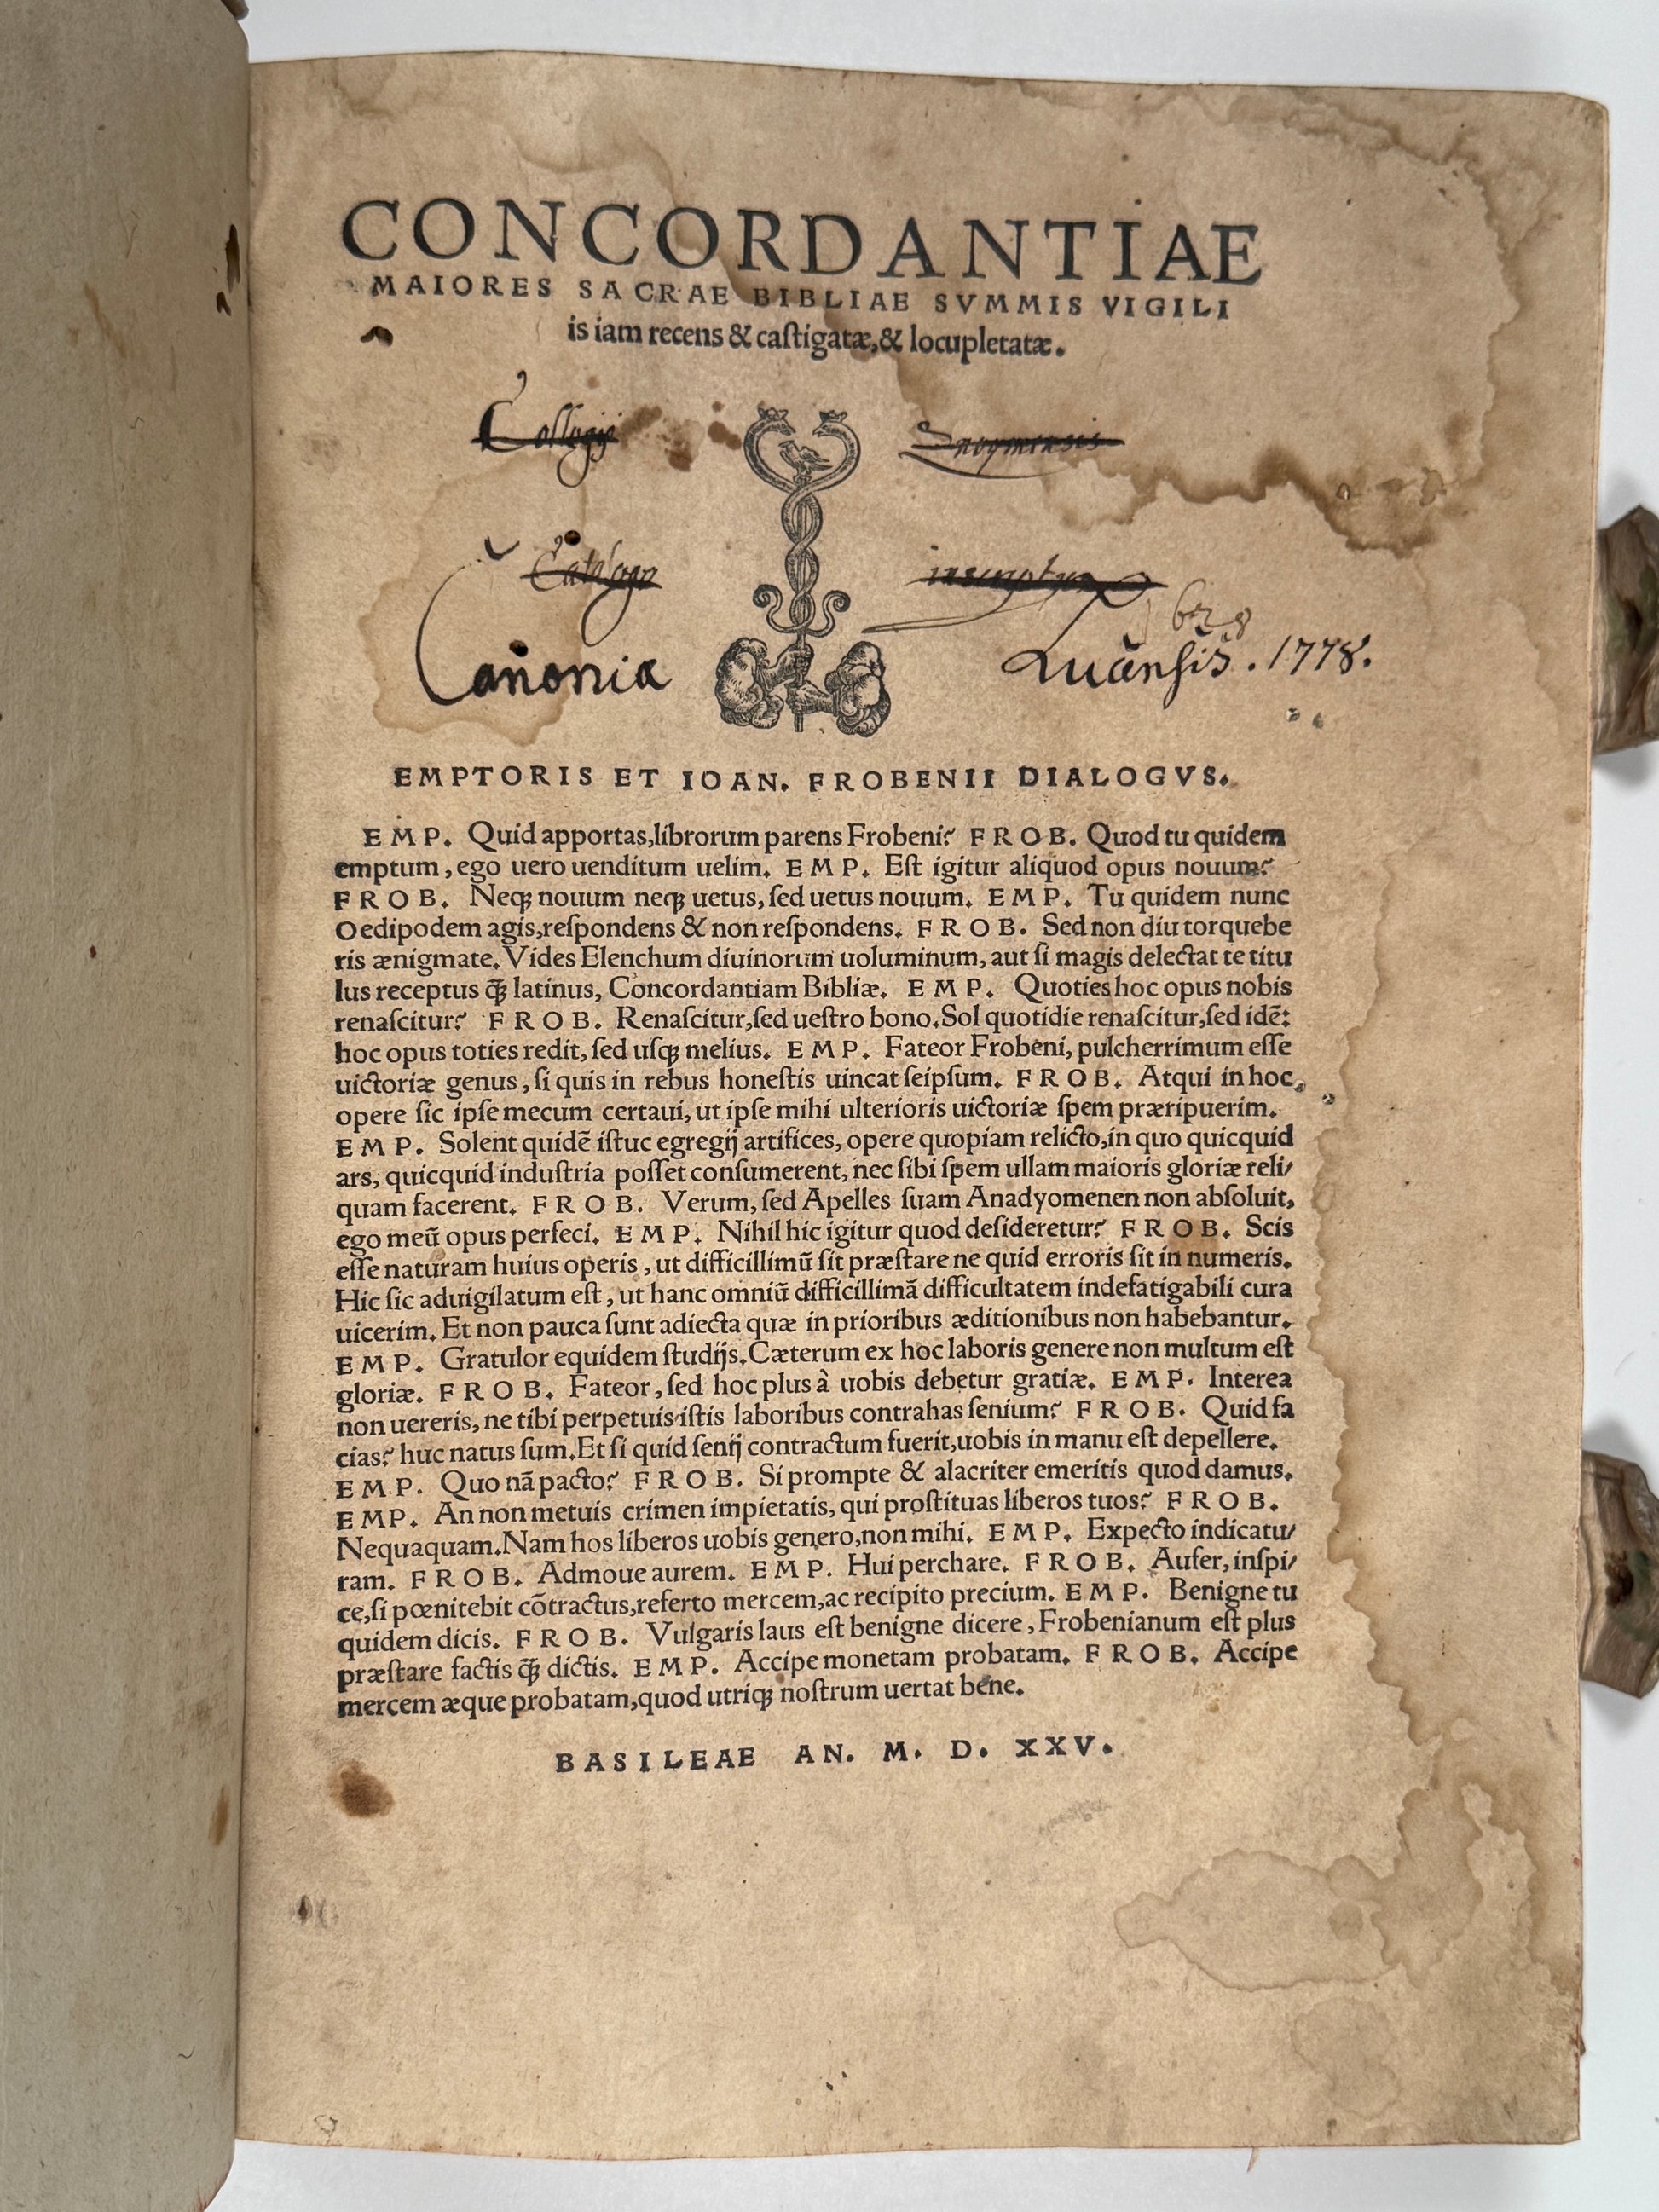 CONCORDANTIAE
MAIORES SACRAE BIBLIAE SVMMIS VIGILI
is iam recens & caſtigatæ, & locupletatæ.
Collegij Znoymensis
Catalogo inscriptus
1628
Cañonia Lucẽnsis. 1778.
EMPTORIS ET IOAN. FROBENII DIALOGVS.
EMP. Quid apportas, librorum parens Frobeni? FROB. Quod tu quidem
emptum, ego uero uenditum uelim. EMP. Eſt igitur aliquod opus nouum?
FROB. Neqꝫ nouum neqꝫ uetus, ſed uetus nouum. EMP. Tu quidem nunc
Oedipodem agis, reſpondens & non reſpondens. FROB. Sed non diu torquebe
ris ænigmate. Vides Elenchum diuinorum uoluminum, aut ſi magis delectat te titu
lus receptus q̃ꝫ latinus, Concordantiam Bibliæ. EMP. Quoties hoc opus nobis
renaſcitur? FROB. Renaſcitur, ſed ueſtro bono. Sol quotidie renaſcitur, ſed idẽ:
hoc opus toties redit, ſed uſqꝫ melius. EMP. Fateor Frobeni, pulcherrimum eſſe
uictoriæ genus, ſi quis in rebus honeſtis uincat ſeipſum. FROB. Atqui in hoc
opere ſic ipſe mecum certaui, ut ipſe mihi ulterioris uictoriæ ſpem præripuerim.
EMP. Solent quidẽ iſtuc egregij artifices, opere quopiam relicto, in quo quicquid
ars, quicquid induſtria poſſet conſumerent, nec ſibi ſpem ullam maioris gloriæ reli/
quam facerent. FROB. Verum, ſed Apelles ſuam Anadyomenen non abſoluit,
ego meũ opus perfeci. EMP. Nihil hic igitur quod deſideretur? FROB. Scis
eſſe naturam huius operis, ut difficillimũ ſit præſtare ne quid erroris ſit in numeris.
Hic ſic aduigilatum eſt, ut hanc omniũ difficillimã difficultatem indefatigabili cura
uicerim. Et non pauca ſunt adiecta quæ in prioribus æditionibus non habebantur.
EMP. Gratulor equidem ſtudijs. Cæterum ex hoc laboris genere non multum eſt
gloriæ. FROB. Fateor, ſed hoc plus à uobis debetur gratiæ. EMP. Interea
non uereris, ne tibi perpetuis iſtis laboribus contrahas ſenium? FROB. Quid fa
cias? huc natus ſum. Et ſi quid ſenij contractum fuerit, uobis in manu eſt depellere.
EMP. Quo nã pacto? FROB. Si prompte & alacriter emeritis quod damus.
EMP. An non metuis crimen impietatis, qui proſtituas liberos tuos? FROB.
Nequaquam. Nam hos liberos uobis genero, non mihi. EMP. Expecto indicatu/
ram. FROB. Admoue aurem. EMP. Hui perchare. FROB. Aufer, inſpi/
ce, ſi pœnitebit cõtractus, referto mercem, ac recipito precium. EMP. Benigne tu
quidem dicis. FROB. Vulgaris laus eſt benigne dicere, Frobenianum eſt plus
præſtare factis q̃ꝫ dictis. EMP. Accipe monetam probatam. FROB. Accipe
mercem æque probatam, quod utriqꝫ noſtrum uertat bene.
BASILEAE AN. M. D. XXV.